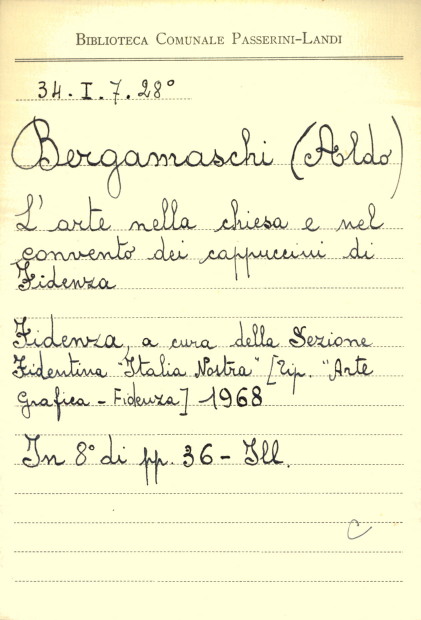 BIBLIOTECA COMUNALE PASSERINI-LANDI
34. I. 7. 28°
Bergamaschi (Aldo)
L'arte nella chiesa e nel
convento dei cappuccini di
Fidenza
Fidenza, a cura della Sezione
Fidentina "Italia Nostra" [Tip. "Arte
Grafica - Fidenza] 1968
In 8° di pp. 36 - Ill.
C